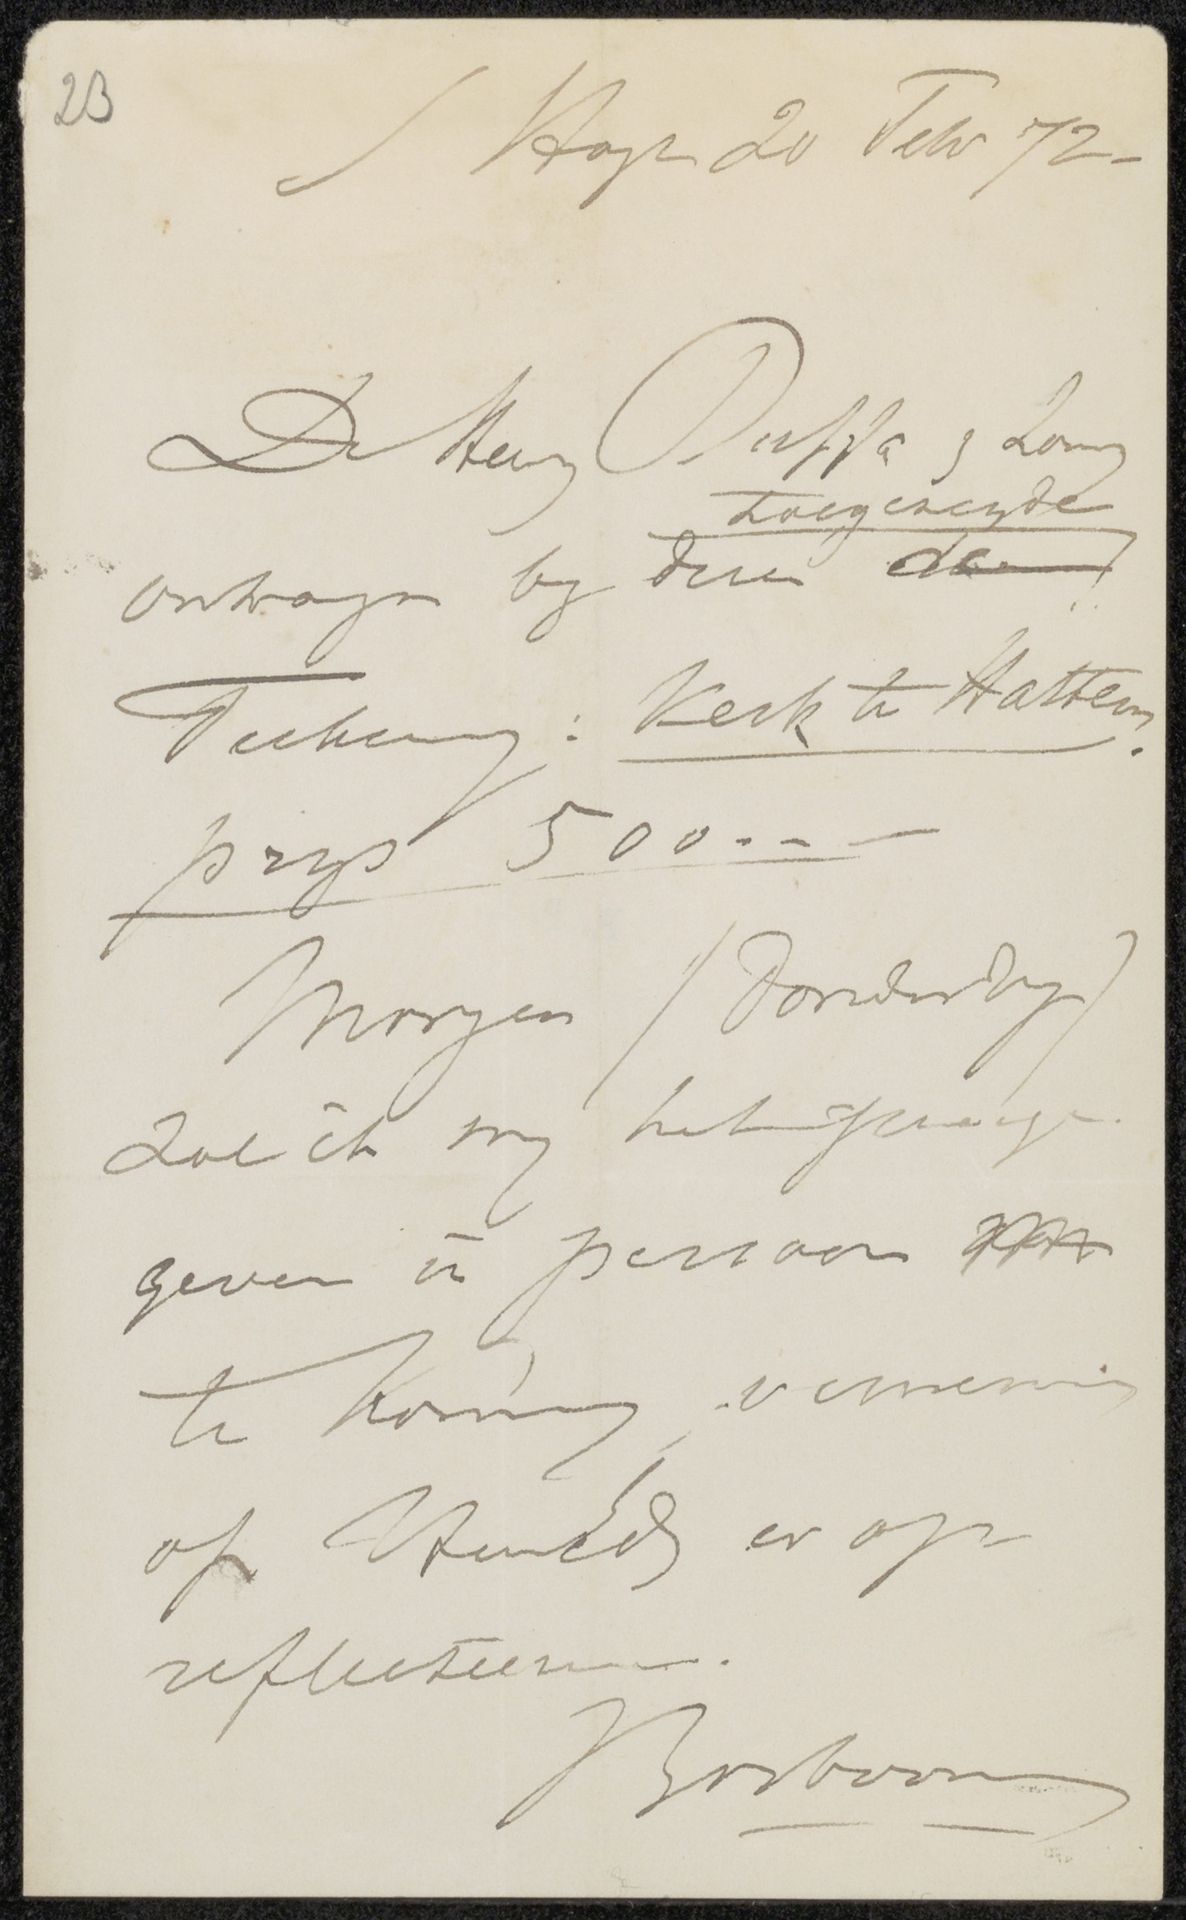 23
s Hage 20 Febr 72 -
De Heeren Buffa & Zonen
toegezegde
ontvangen by deze de
Teekening: Kerk te Hattem.
prijs 500.--
Morgen (Donderdag)
zal ik my het genoegen
geven in persoon
te komen, vernemen
of UwEd er op
reflecteeren.
JBosboom